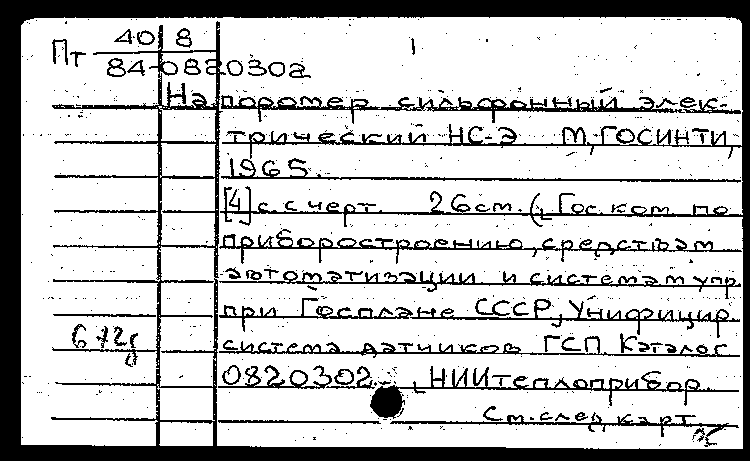 Пт 40 8
84-0820302
Напоромер сильфонный элек-
трический НС-Э М, ГОСИНТИ,
1965.
[4] с. с черт. 26 см. (Гос. ком. по
приборостроению, средствам
автоматизации и системам упр.
при Госплане СССР, Унифицир.
система датчиков ГСП Каталог
0820302. НИИтеплоприбор.
См. след. карт.